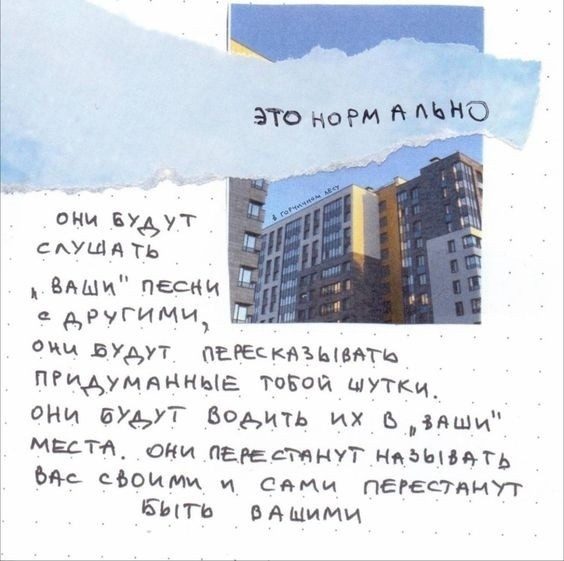 ЭТО НОРМАЛЬНО
в горчичном лесу
ОНИ БУДУТ
СЛУШАТЬ
„ВАШИ" ПЕСНИ
с ДРУГИМИ,
ОНИ БУДУТ ПЕРЕСКАЗЫВАТЬ
ПРИДУМАННЫЕ ТОБОЙ ШУТКИ.
ОНИ БУДУТ ВОДИТЬ ИХ В „ВАШИ"
МЕСТА. ОНИ ПЕРЕСТАНУТ НАЗЫВАТЬ
ВАС СВОИМИ И САМИ ПЕРЕСТАНУТ
БЫТЬ ВАШИМИ